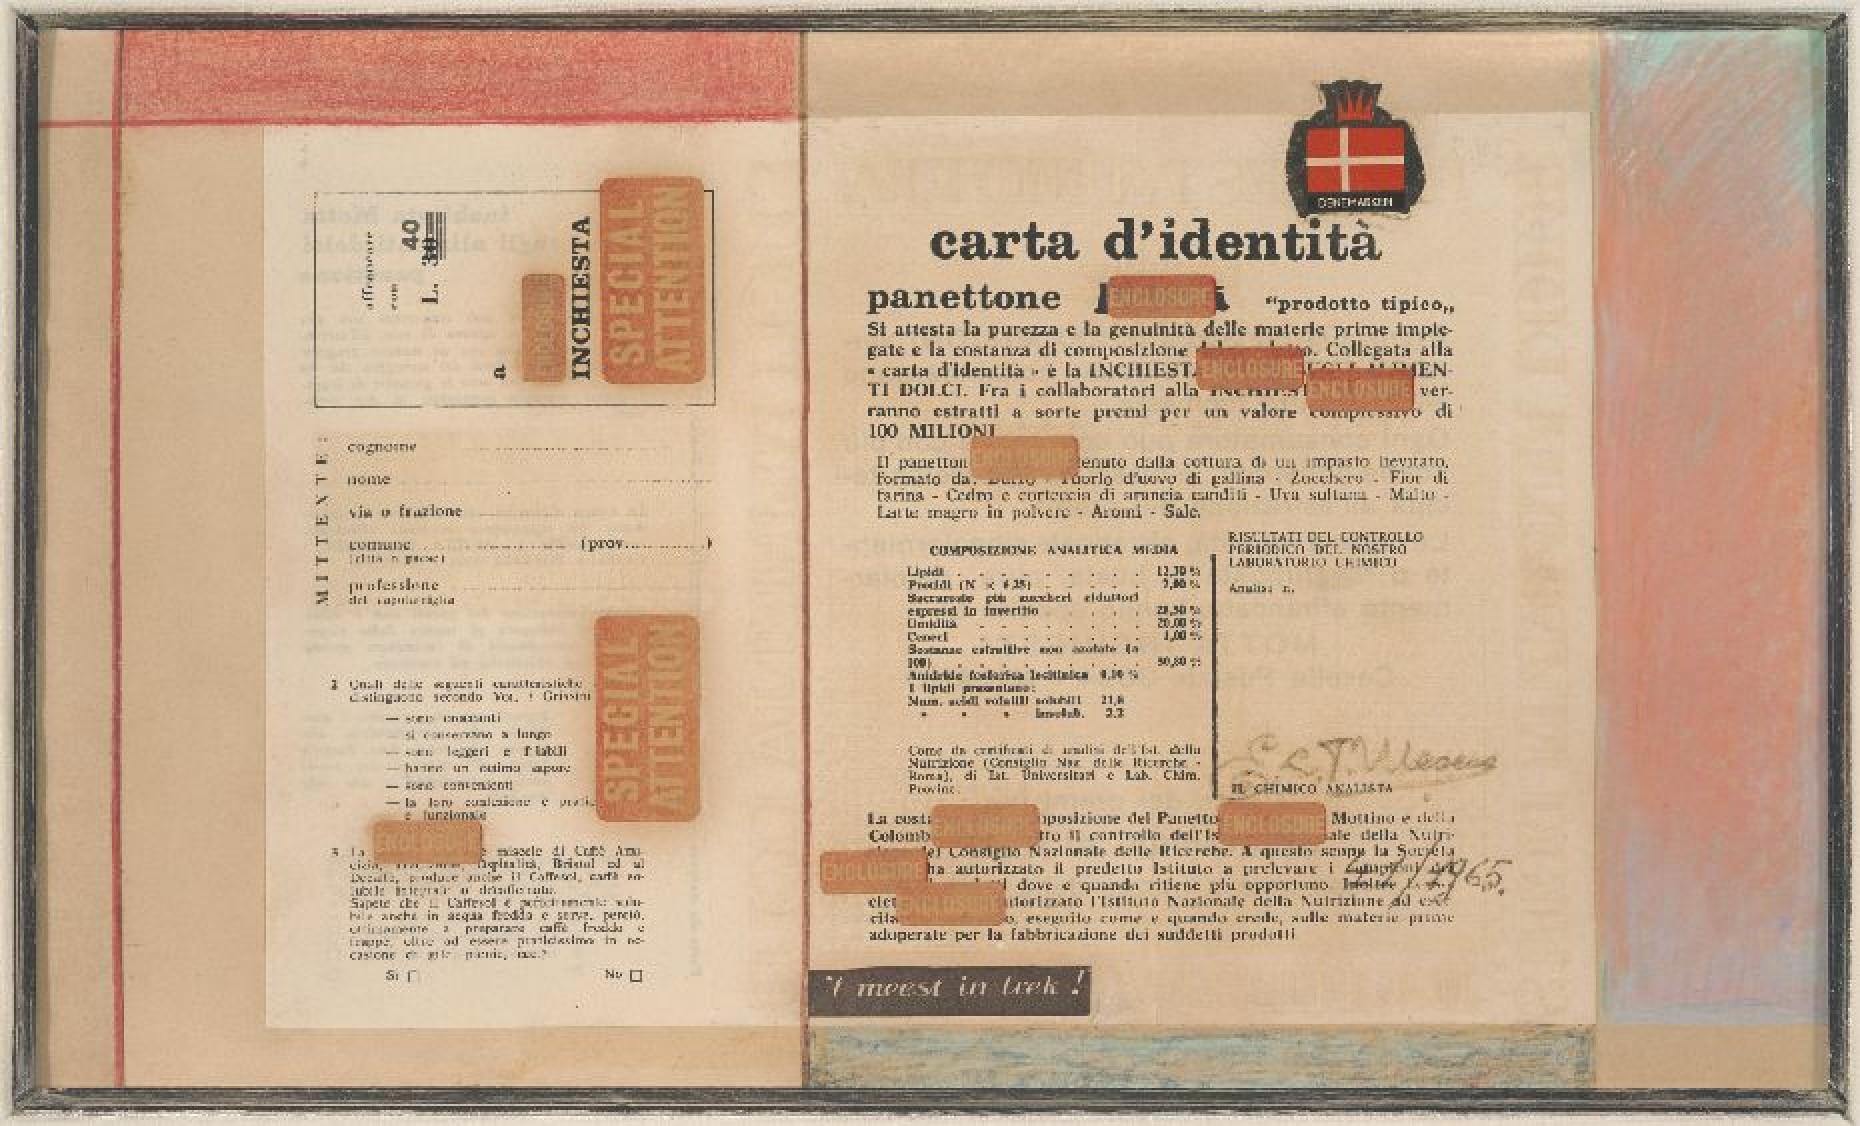 affrancare
con
L. 30 40
a
ENCLOSURE
INCHIESTA
SPECIAL
ATTENTION
MITTENTE:
cognome
nome
via o frazione
comune (prov. )
(città o paese)
professione
del capofamiglia
2 Quali delle seguenti caratteristiche
distinguono secondo Voi, i Grissini
— sono croccanti
— si conservano a lungo
— sono leggeri e friabili
— hanno un ottimo sapore
— sono convenienti
— la loro confezione è
e funzionale
SPECIAL
ATTENTION
ENCLOSURE
3 miscele di Caffè
Ospitalità, Bristol ed al
produce anche il Caffesol, caffè so-
lubile integrale o decaffeinato.
Sapete che il Caffesol è perfettamente solu-
bile anche in acqua fredda e serve, perciò,
ottimamente a preparare caffè freddo e
frappé, oltre ad essere praticissimo in oc-
casione di gite, picnic, ecc.?
Si No
DENEMARKEN
carta d'identità
panettone ENCLOSURE "prodotto tipico„
Si attesta la purezza e la genuinità delle materie prime impie-
gate e la costanza di composizione Collegata alla
« carta d'identità » è la INCHIEST ENCLOSURE ALIMEN-
TI DOLCI. Fra i collaboratori alla INCHIEST ENCLOSURE ver-
ranno estratti a sorte premi per un valore complessivo di
100 MILIONI
Il panetton ENCLOSURE tenuto dalla cottura di un impasto lievitato,
formato da: Burro - Tuorlo d'uovo di gallina - Zucchero - Fior di
farina - Cedro e corteccia di arancia canditi - Uva sultana - Malto -
Latte magro in polvere - Aromi - Sale.
COMPOSIZIONE ANALITICA MEDIA
Lipidi . . . . 12,70 %
Protidi (N × 6,25) . . . 7,00 %
Saccarosio più zuccheri riduttori
espressi in invertito . . . 28,50 %
Umidità . . . . 20,00 %
Ceneri . . . . 1,00 %
Sostanze estrattive non azotate (a
100) . . . . 30,80 %
Anidride fosforica lecitinica 0,10 %
I lipidi presentano:
Num. acidi volatili solubili 21,8
» » » insolub. 2,2
RISULTATI DEL CONTROLLO
PERIODICO DEL NOSTRO
LABORATORIO CHIMICO
Analisi n.
Come da certificati di analisi dell'Ist. della
Nutrizione (Consiglio Naz. delle Ricerche -
Roma), di Ist. Universitari e Lab. Chim.
Provinc.
E.L.T. Mesens
IL CHIMICO ANALISTA
La costa ENCLOSURE mposizione del Panetto ENCLOSURE Mottino e della
Colomb tto il controllo dell'Is ale della Nutri-
del Consiglio Nazionale delle Ricerche. A questo scopo la Società
ENCLOSURE ha autorizzato il predetto Istituto a prelevare i campioni
dove e quando ritiene più opportuno. Inoltre
1965.
ciet ENCLOSURE utorizzato l'Istituto Nazionale della Nutrizione ad eser-
cita o, eseguito come e quando crede, sulle materie prime
adoperate per la fabbricazione dei suddetti prodotti
't meest in trek !